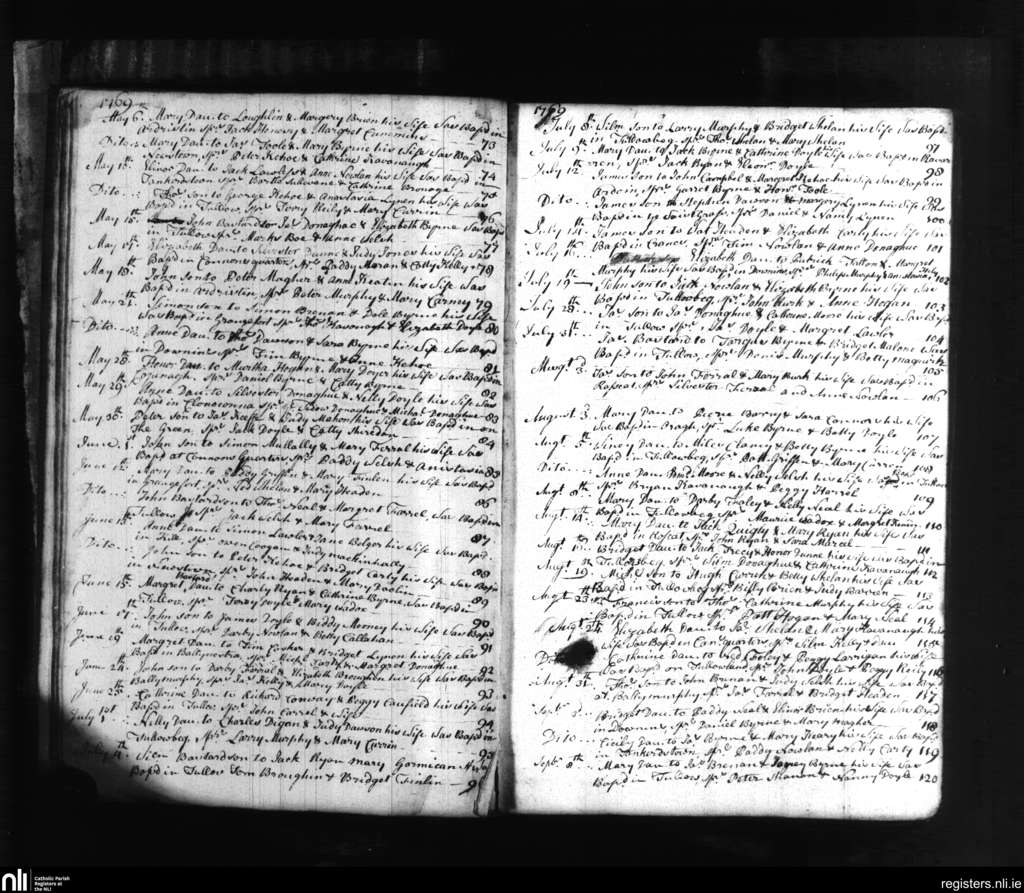 1769
May 6th Mary Dau. to Loughlin & Margery Brien his Wife Was Bapd in
Ardristin Sprs Jack Flowery & Margret Cummins 73
Dito Mary Dau. to Jas Toole & Mary Byrne his Wife Was Bapd in
Newstown Sprs Peter Kehoe & Cathrine Kavanaugh 74
May 15th Dau. to Jack Lawless & Ann Nowlan his Wife Was Bapd in
Tankerdstown Sprs Bartle Sullivane & Cathrine 75
Dito Thos Son to George Kehoe & Anastasia Lynen his Wife Was
Bapd in Tullow Sprs Terry Kiely & Mary Currin 76
May 16th John Bastard to Jas Donaghoe & Elizabeth Byrne Was Bapd
in Tullow Sprs Mark Boe & Anne Welch 77
May 17th Elizabeth Dau. to Silvester Dunne & Judy Jones his Wife Was
Bapd in Connors quarter Sprs Paddy Moran & Catty Kelly 78
May 18th John Son to Peter Magher & Ann Keatin his Wife Was
Bapd in Ardristin Sprs Peter Murphy & Mary Carney 79
May 21st Simon Son to Simon Brenan & Doll Byrne his Wife
Was Bapd in Grangefort Sprs Thos Kavanagh & Elizabeth Doyle 80
Dito Anne Dau. to Dawson & Sara Byrne his Wife Was Bapd
in Downins Sprs Tim Byrne & Anne Kehoe 81
May 28th Honor Dau. to Murtha Hogher & Mary Doyle his Wife Was Bapd in
Sprs Daniel Byrne & Catty Byrne 82
May 29th Rose Dau. to Silvester Donaghue & Nelly Doyle his Wife Was
Bapd in Sprs Donaghue & Michal Donaghue 83
May 30th Peter Son to Jas Keeffe & Judy Mahon his Wife Was Bapd in on
The Green Sprs Jack Doyle & Catty Sheridan 84
June 1st John Son to Simon Mullally & Mary Farrel his Wife Was
Bapd at Connors Quarter Sprs Paddy Welsh & Anistasia 85
June 12th Mary Dau. to Paddy Griffin & Mary Finlen his Wife Was Bapd
in Grangefort Sprs Whelan & Mary Headen 86
Dito John Bastardson to Thos Neal & Margret Farrel Was Bapd in
Tullow Sprs Jack Welsh & Mary Farrel
June 13th Anne Dau. to Simon Lawler Jane Bolger his Wife Was Bapd
in Kill Sprs Coogan & Judy mackinhally 87
Dito John Son to Peter Kehoe & Bridget Carty his Wife Was Bapd
in Newstown Sprs John Headen & Mary Doolin 88
June 15th Margret Dau. to Charly Ryan & Cathrine Byrne Was Bapd in
Tullow Sprs Terry Doyle & Mary 89
June 17th John son to James Doyle & Biddy Money his Wife Was Bapd
in Tullow Sprs Darby Nowlan & Betty Callahan 90
June 19 Margret Dau. to Tim Cosker & Bridget Lynon his Wife Was
Bapd in Sprs Mick Carty & Margret Donaghue 91
June 24th John son to Darby Farral & Elizabeth Broughan his Wife Was Bapd in
Ballymurphy Sprs Jas Kelly & Mary Doyle 92
June 25th Cathrine Dau. to Richard Conway & Peggy Caufield his Wife Was
Bapd in Tullow Sprs John Carrol & Wife 93
July 1st Nelly Dau. to Charles Digan & Judy Dawson his Wife Was Bapd in
Tullowbeg Sprs Larry Murphy & Mary Currin 94
July 4th Bastardson to Jack Ryan mary Gormican Was
Bapd in Tullow Tom Broughin & Bridget Finlin
1769
July 8th Wilm Son to Larry Murphy & Bridget Whelan his Wife Was Bapd
in Tullowbeg Sprs Thos Whelan & Mary Whelan 97
July 9th Mary Dau. to Jack Byrne & Cathrine Doyle Was Bapt in
Sprs Jack Byrne & Doyle 98
July 12th James Son to John Campbel & Margret Kehoe his Wife Was Bapd in
Ardein Sprs Garret Byrne & Honr Toole
Dito James Son to Stephen Dawson & Margery Lynon his Wife
Bapd in Sprs Daniel & Nancy Lynen 100
July 14th James Son to Pat Headen & Elizabeth Carty his Wife Was
Bapd in Sprs Tim Nowlan & Anne Donaghue 101
July 16th Elizabeth Dau. to Patrick & Margret
Murphy his Wife Was Bapd in Downins Sprs Philip Murphy 102
July 19th John Son to Jack Nowlan & Elizabeth Byrne his Wife Was
Bapd in Tullowbeg Sprs John Kurk & Anne Hogan 103
July 28th Jas Son to Jas Donaghue & Cathrine Moore his Wife Was Bapd
in Tullow Sprs Jas Doyle & Margret Lawler 104
July 31st Jas Bastard to Byrne & Bridget Malone Was
Bapd in Tullow Sprs Denis Murphy & Betty 105
August 2d Jas Son to John Farral & Mary Kurk his Wife Was Bapd in
Roscat Sprs Silvester and Anne Nowlan 106
August 3d Mary Dau. to Pierce Barry & Sara Connor his Wife
Was Bapd in Sprs Luke Byrne & Betty Doyle 107
Augt 5th Dau. to Miles Clancy & Betty Byrne his Wife Was
Bapd in Tullowbeg Sprs Batt Griffen & Mary Currin 108
Dito Anne Dau. Moore & Nelly Welsh his Wife Was Bapd in Tullow
Sprs Bryan Kavanaugh & Peggy Farrel 109
Augt 8th Mary Dau. to Darby Foley & Kelly Neal his Wife Was
Bapd in Tullowbeg Sprs Maurice & Margret 110
Augt 14th Mary Dau. to Dick Quigly & Mary Ryan his Wife Was
Bapd in Roscat Sprs John Ryan & Sara 111
Augt 10th Bridget Dau. to Jack Treacy & Honor Dunne his Wife Was Bapd in
Tullowbeg Sprs Wilm Donaghue & Cathrine Kavanaugh 112
Augt 19th Michl Son to Hugh & Betty Whelan his Wife Was
Bapd in Tullowbeg Sprs Billy Brien & Judy Warren 113
Augt 23d Francis Son to Thos & Cathrine Murphy his Wife Was
Bapd in Tullow Sprs Patt Hogan & Mary Neal 114
Augt 24 Elizabeth Dau. to Jas & Mary Kavanaugh his
Wife Was Bapd in Conrs Quarter Sprs John Kelly & Ann 115
Dito Cathrine Dau. to Ned Cooley & Peggy Larrigan his Wife
Was Bapd on Tullowland Sprs John & Peggy Reily 116
Augt 31st Thos Son to John Brenan & Judy Welsh his Wife Was Bapd
at Ballymurphy Sprs Jas Farral & Bridget Headen 117
Septr 2 Bridget Dau. to Paddy Neal & Brien his Wife Was Bapd
in Downins Sprs Daniel Byrne & Mary Magher 118
Dito Cicily Dau. to Jas Byrne & Mary Neary his Wife Was Bapd
in Tankerdstown Sprs Paddy Nowlan & Nelly Carty 119
Septr 8th Mary Dau. to Jas Brenan & Byrne his Wife Was
Bapd in Tullow Sprs Peter & Nanny Doyle 120
nli
Catholic Parish
Registers at
the NLI
registers.nli.ie